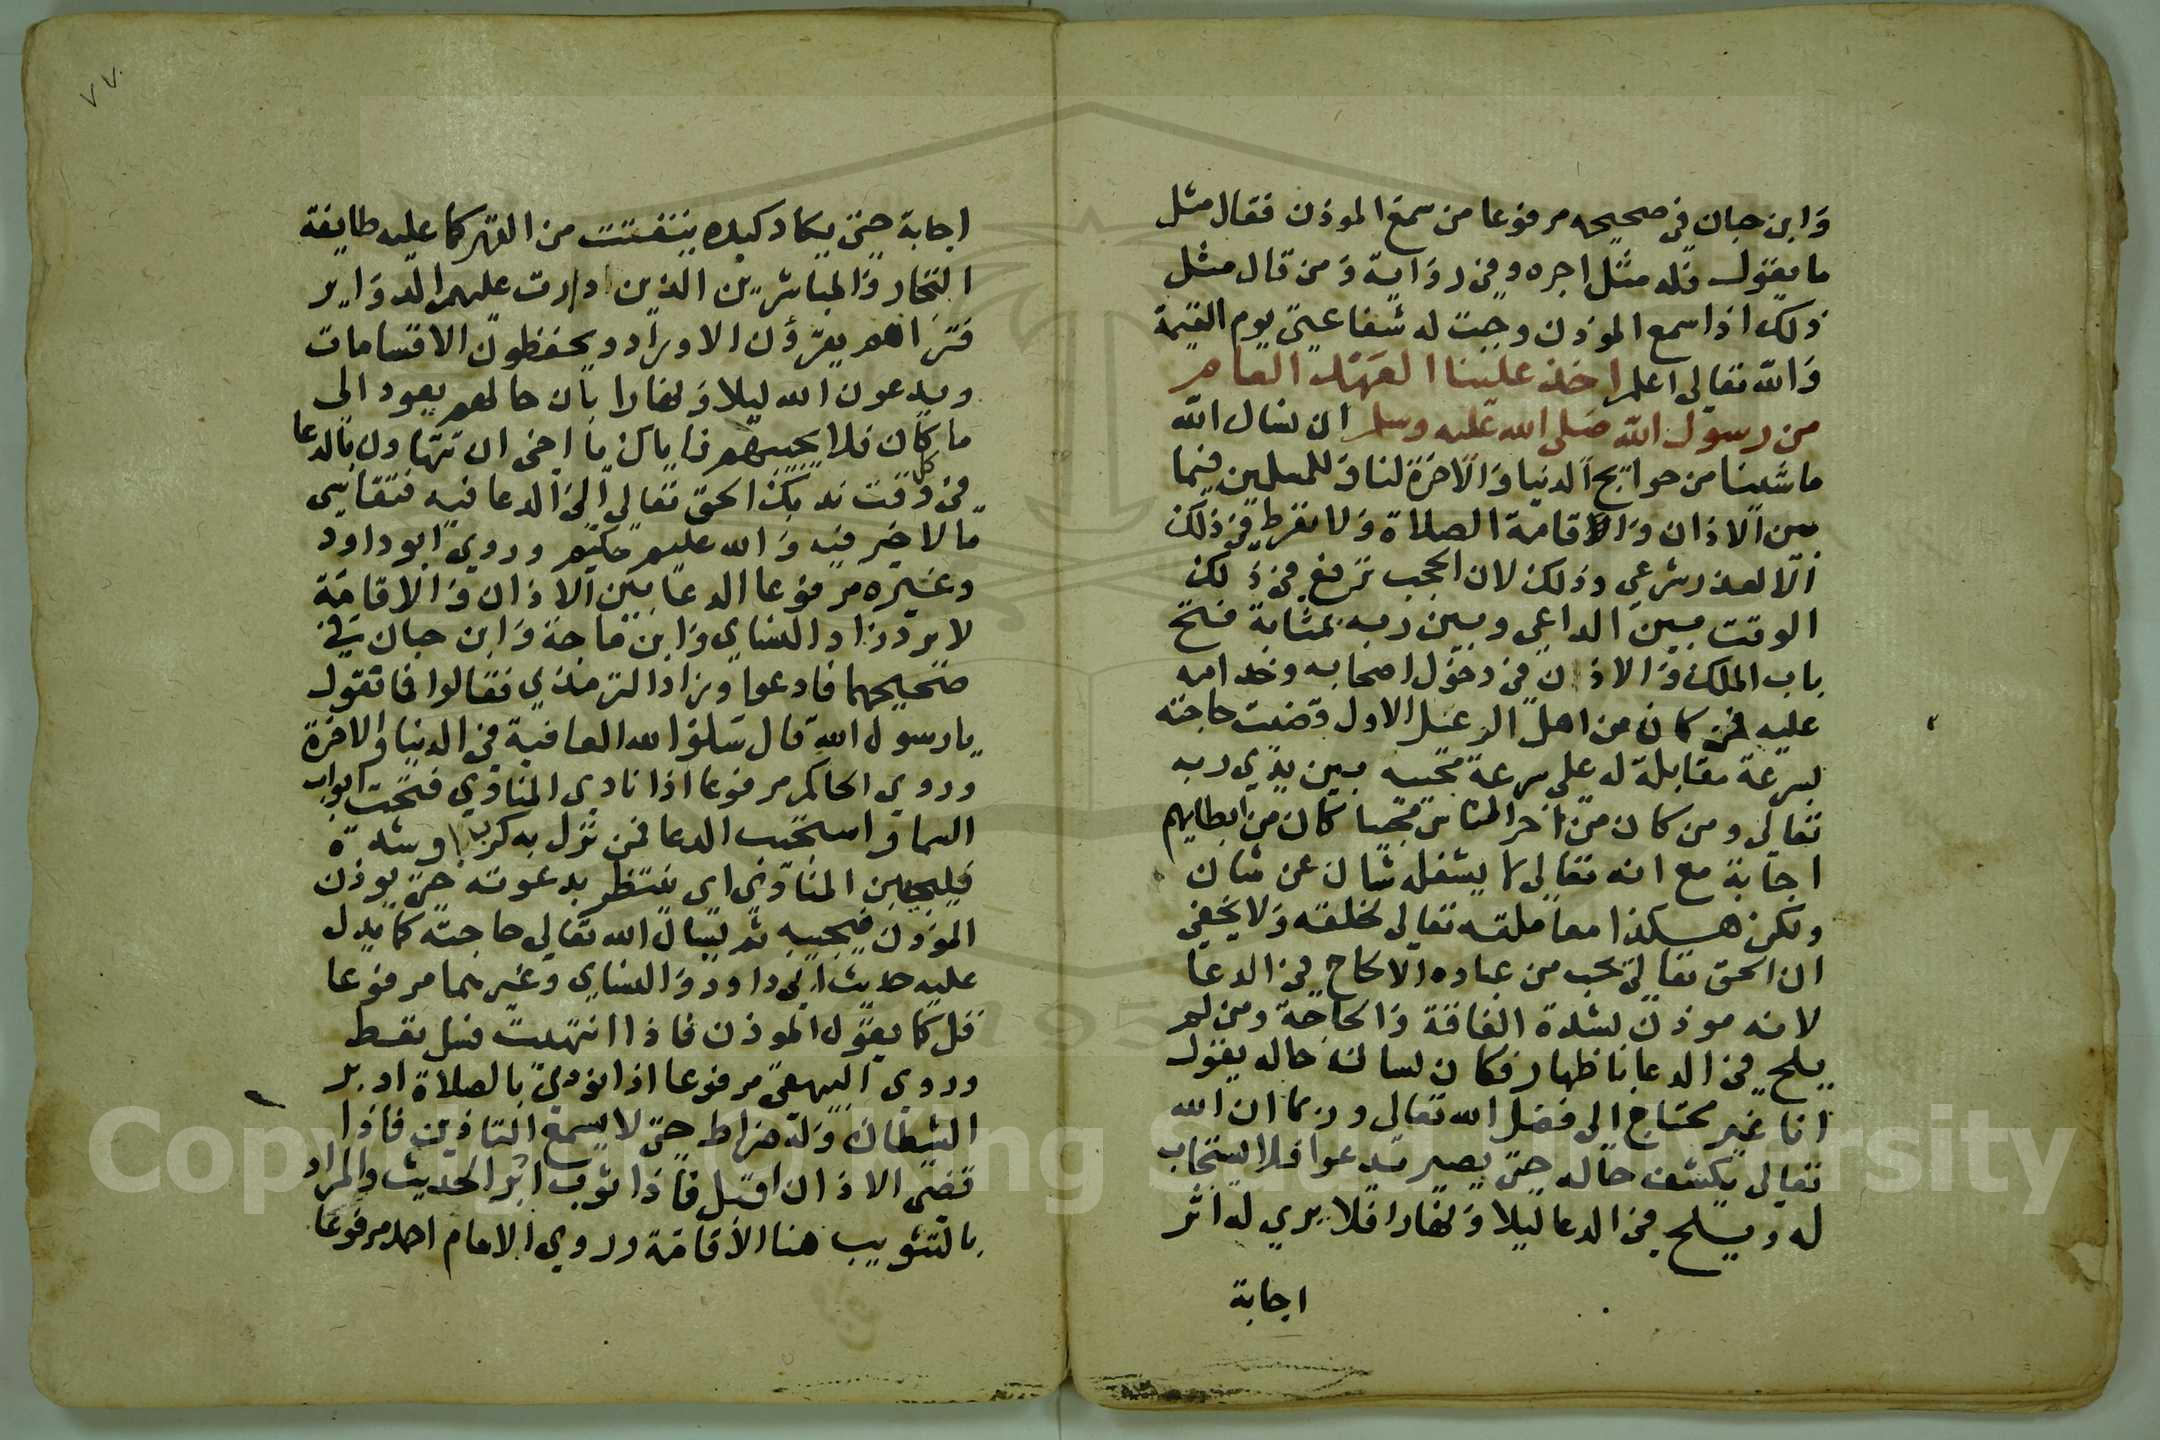 وابن حبان في صحيحه مرفوعا من سمع الموذن فقال مثل
ما يقول فله مثل اجره وفي رواية ومن قال مثل
ذلك اذا سمع الموذن وجبت له شفاعتي يوم القيمة
والله تعالى اعلم اخذ علينا العهد العام
من رسول الله صلى الله عليه وسلم ان نسال الله
ما شئنا من حوايج الدنيا والاخرة لنا وللمسلمين فيما
بين الاذان والاقامة الصلاة ولا نفرط في ذلك
الا لعذر شرعي وذلك لان الحجب ترفع في ذلك
الوقت بين الداعي وبين ربه بمثابة فتح
باب الملك والاذن في دخول اصحابه وخدامه
عليه فمن كان من اهل الرعيل الاول قضيت حاجته
بسرعة مقابلة له على سرعة مجيه بين يدي ربه
تعالى ومن كان من اخر الناس مجيا كان من ابطايهم
اجابة مع انه تعالى لا يشغله شان عن شان
ولكن هكذا معاملته تعالى لخلقه ولا يخفى
ان الحق تعالى يحب من عباده الالحاح في الدعا
لانه موذن بشدة الفاقة والحاجة ومن لم
يلح في الدعا باظهار فكان لسان حاله يقول
انا غير محتاج الى فضل الله تعالى وربما ان الله
تعالى يكشف حاله حتى يصير يدعوا فلا يستجاب
له ويلح في الدعا ليلا ونهارا فلا يرى له اثر
اجابة
٧٧
اجابة حتى يكاد كبده يتفتت من القهر كما عليه طايفة
التجار والمباشرين الذين دارت عليهم الدواير
فتراهم يقرؤن الاوراد ويحفظون الاقسامات
ويدعون الله ليلا ونهارا بان حالهم يعود الى
ما كان فلا يجيبهم فاياك يا اخي ان تتهاون بالدعا
في كل وقت ندبك الحق تعالى الى الدعا فيه فتقاسي
ما لا خير فيه والله عليم حكيم وروى ابو داود
وغيره مرفوعا الدعا بين الاذان والاقامة
لا يرد زاد النساي وابن ماجة وابن حبان في
صحيحهما فادعوا وزاد الترمذي فقالوا فما نقول
يا رسول الله قال سلوا الله العافية في الدنيا والاخرة
وروى الحاكم مرفوعا اذا نادى المنادي فتحت ابواب
السما واستجيب الدعا فمن نزل به كرب او شدة
فليجيبن المنادي اي ينتظر بدعوته حتى يوذن
الموذن فيجيبه ثم يسال الله تعالى حاجته كما يدل
عليه حديث ابي داود والنساي وغيرهما مرفوعا
قل كما يقول الموذن فاذا انتهيت فسل تعط
وروى البيهقي مرفوعا اذا نودي بالصلاة ادبر
الشيطان وله ضراط حتى لا يسمع التاذين فاذا
قضي الاذان اقبل فاذا ثوب ادبر الحديث والمراد
بالتثويب هنا الاقامة وروى الامام احمد مرفوعا
Copyright © King Saud University